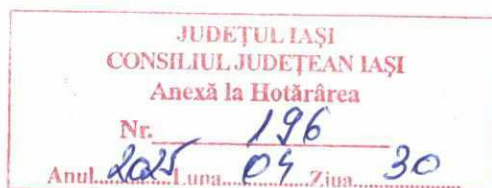 JUDEȚUL IAȘI
CONSILIUL JUDEȚEAN IAȘI
Anexă la Hotărârea
Nr. 196
Anul 2025 Luna 04 Ziua 30